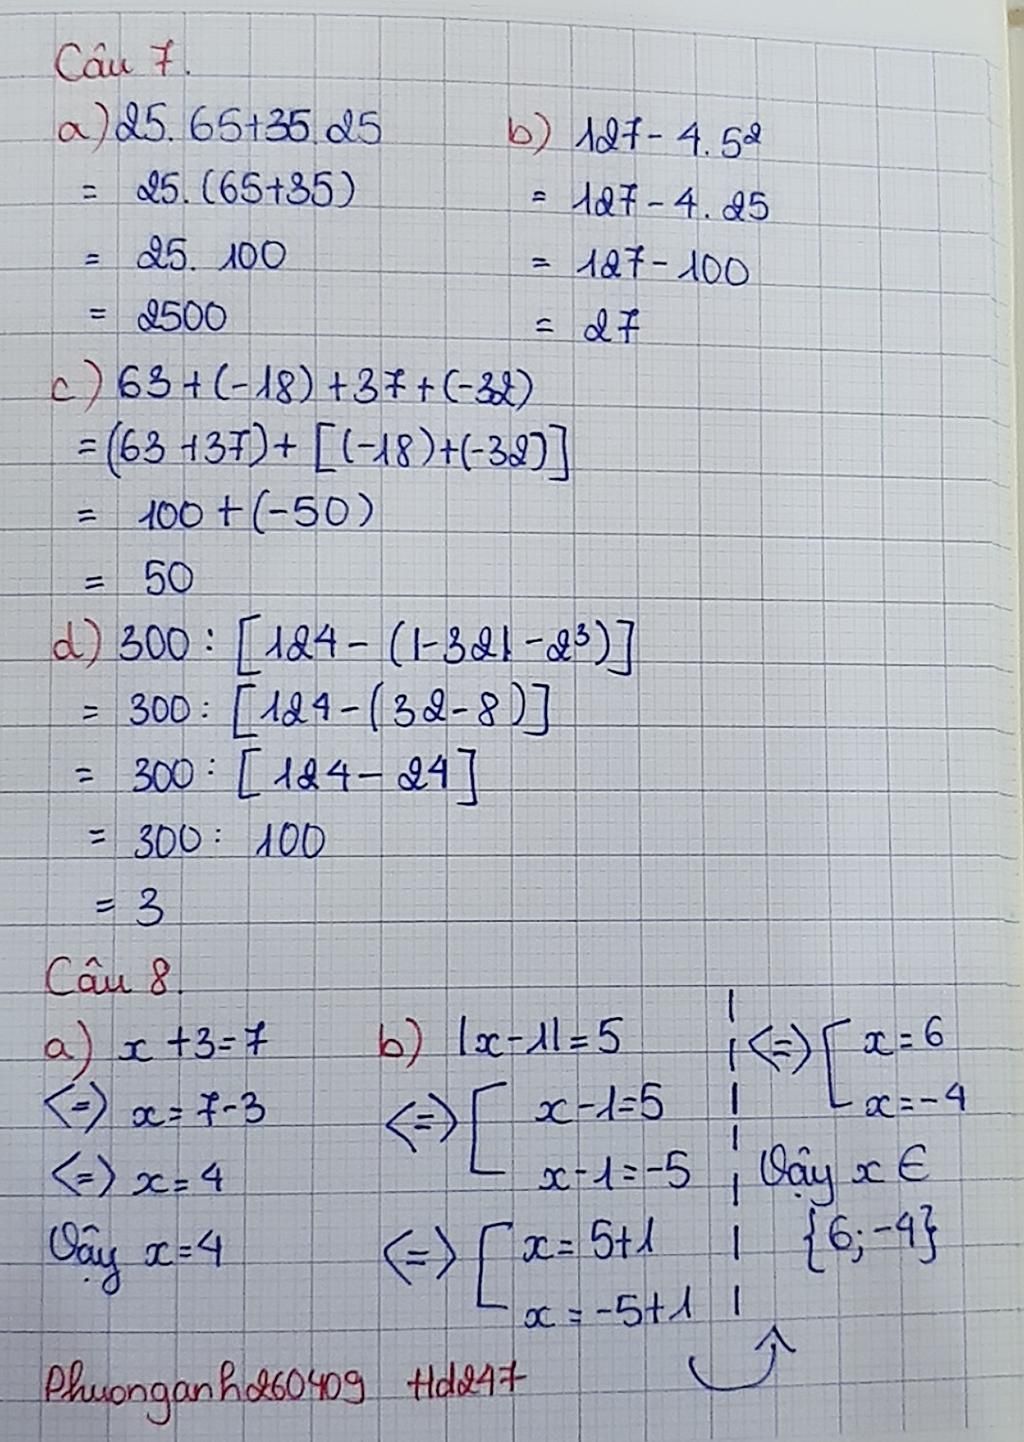 Câu 7.
a) 25.65+35.25
= 25.(65+35)
= 25.100
= 2500
b) 127-4.5²
= 127-4.25
= 127-100
= 27
c) 63+(-18)+37+(-32)
=(63+37)+[(-18)+(-32)]
= 100+(-50)
= 50
d) 300:[124-(|-32|-2³)]
= 300:[124-(32-8)]
= 300:[124-24]
= 300: 100
= 3
Câu 8.
a) x+3=7
<=> x=7-3
<=> x=4
Vậy x=4
b) |x-1|=5
<=> [ x-1=5
x-1=-5
<=> [ x=5+1
x=-5+1
<=> [ x=6
x=-4
Vậy x ∈
{6;-4}
Phuonganh260409 Hd247